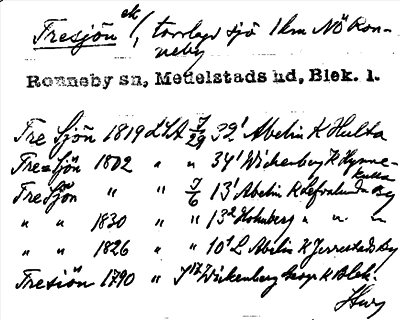 Tresjön ek/, torrlagd sjö 1 km NÖ Ron-
neby
Ronneby sn, Medelstads hd, Blek. l.
Tre Sjön 1819 LSA J/29 32' Abelin K Hulta
Tre=sjön 1802 " " 34' Wickenberg K Hymne-
kulla
Tre Sjön " " J/6 13' Abelin K Lefvalunda By
" " 1830 " " 13² Holmberg " " "
" " 1826 " " 10' L Abelin K Jerrestads By
Tresiön 1790 " J Wickenberg Geogr. K Blek.